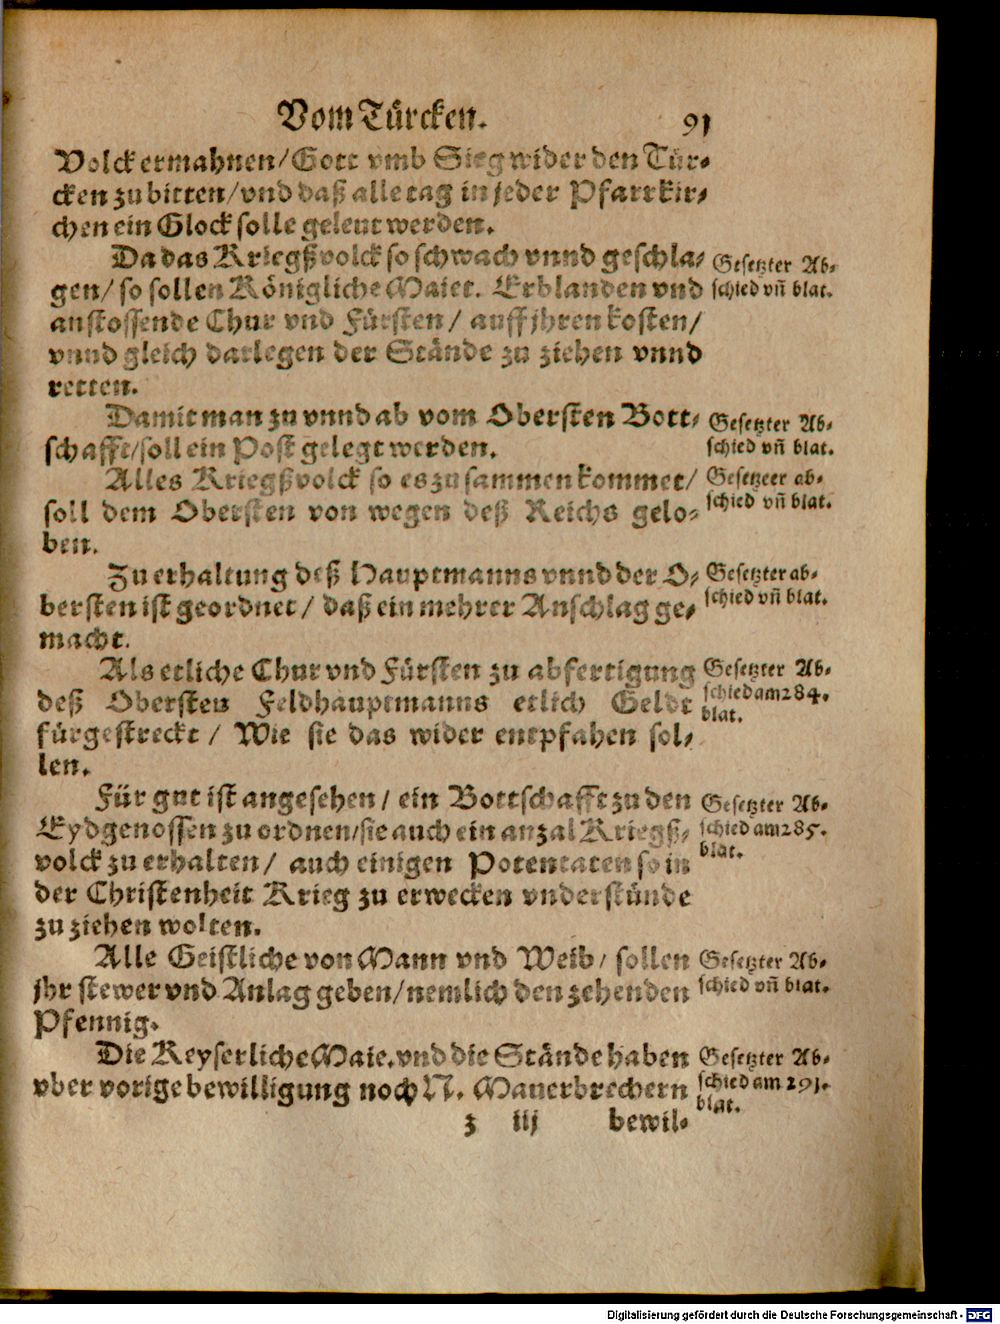 Vom Türcken. 91
Volck ermahnen/ Gott vmb Sieg wider den Tür-
cken zu bitten/ vnd daß alle tag in jeder Pfarrkir-
chen ein Glock solle geleut werden.
Da das Kriegßvolck so schwach vnnd geschla-
gen/ so sollen Königliche Maiet. Erblanden vnd
anstossende Chur vnd Fürsten/ auff jhren kosten/
vnnd gleich darlegen der Stände zu ziehen vnnd
retten.
Gesetzter Ab-
schied vñ blat.
Damit man zu vnnd ab vom Obersten Bott-
schafft/ soll ein Post gelegt werden.
Gesetzter Ab-
schied vñ blat.
Alles Kriegßvolck so es zusammen kommet/
soll dem Obersten von wegen deß Reichs gelo-
ben.
Gesetzeer ab-
schied vñ blat.
Zu erhaltung deß Hauptmanns vnnd der O-
bersten ist geordnet/ daß ein mehrer Anschlag ge-
macht.
Gesetzter ab-
schied vñ blat.
Als etliche Chur vnd Fürsten zu abfertigung
deß Obersten Feldhauptmanns etlich Geldt
fürgestreckt/ Wie sie das wider entpfahen sol-
len.
Gesetzter Ab-
schied am 284.
blat.
Für gut ist angesehen/ ein Bottschafft zu den
Eydgenossen zu ordnen/ sie auch ein anzal Kriegß-
volck zu erhalten/ auch einigen Potentaten so in
der Christenheit Krieg zu erwecken vnderstünde
zu ziehen wolten.
Gesetzter Ab-
schied am 285.
blat.
Alle Geistliche von Mann vnd Weib/ sollen
jhr stewer vnd Anlag geben/ nemlich den zehenden
Pfennig.
Gesetzter Ab-
schied vñ blat.
Die Keyserliche Maie. vnd die Stände haben
vber vorige bewilligung noch N. Mauerbrechern
Gesetzter Ab-
schied am 291.
blat.
z iij bewil-
Digitalisierung gefördert durch die Deutsche Forschungsgemeinschaft - DFG